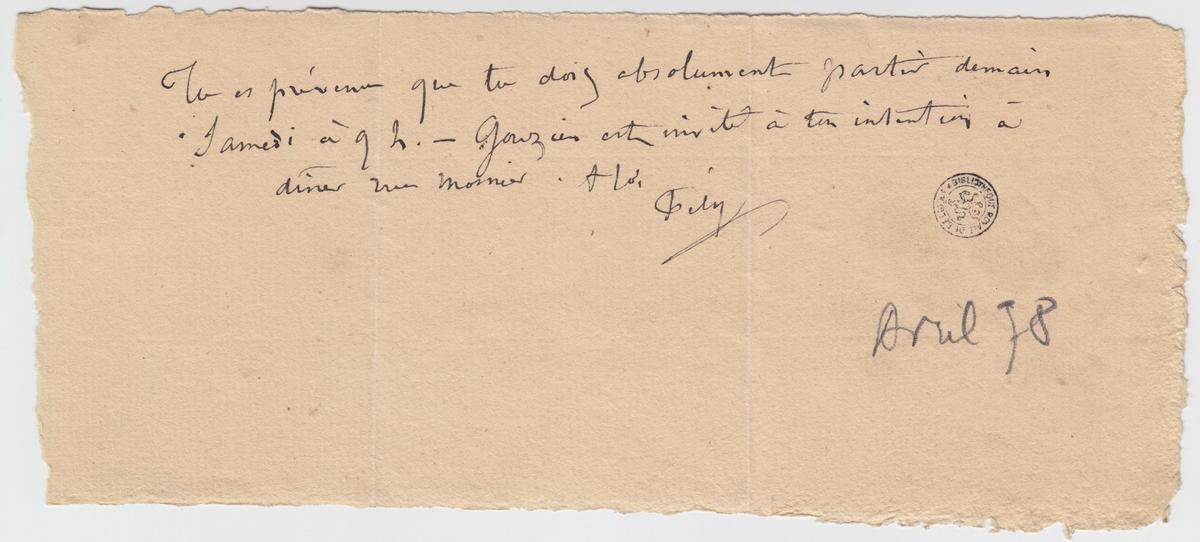 Tu es prévenu que tu dois absolument partir demain
Samedi à 9 h. — Gouzien est invité à ton intention à
dîner rue Mosnier. A toi
Fély
BIBLIOTHEQUE ROYALE DE BELGIQUE
Avril 78